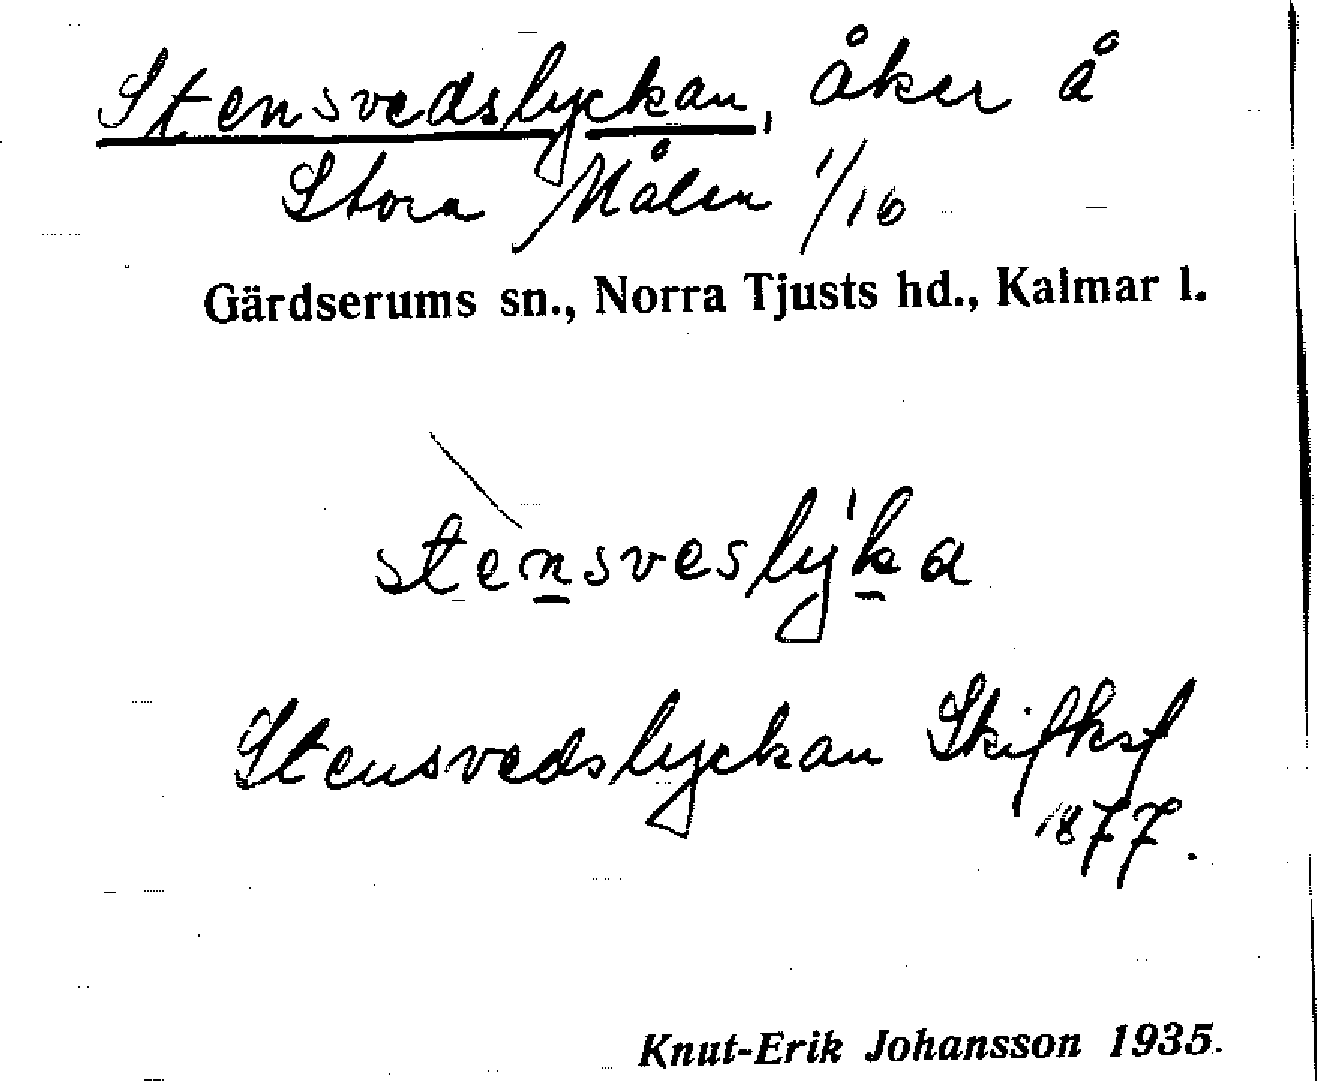 Stensvedslyckan, åker å
Stora Målen 1/16
Gärdserums sn., Norra Tjusts hd., Kalmar l.
stènsvesly'ka
Stensvedslyckan Skifksf
1877.
Knut-Erik Johansson 1935.